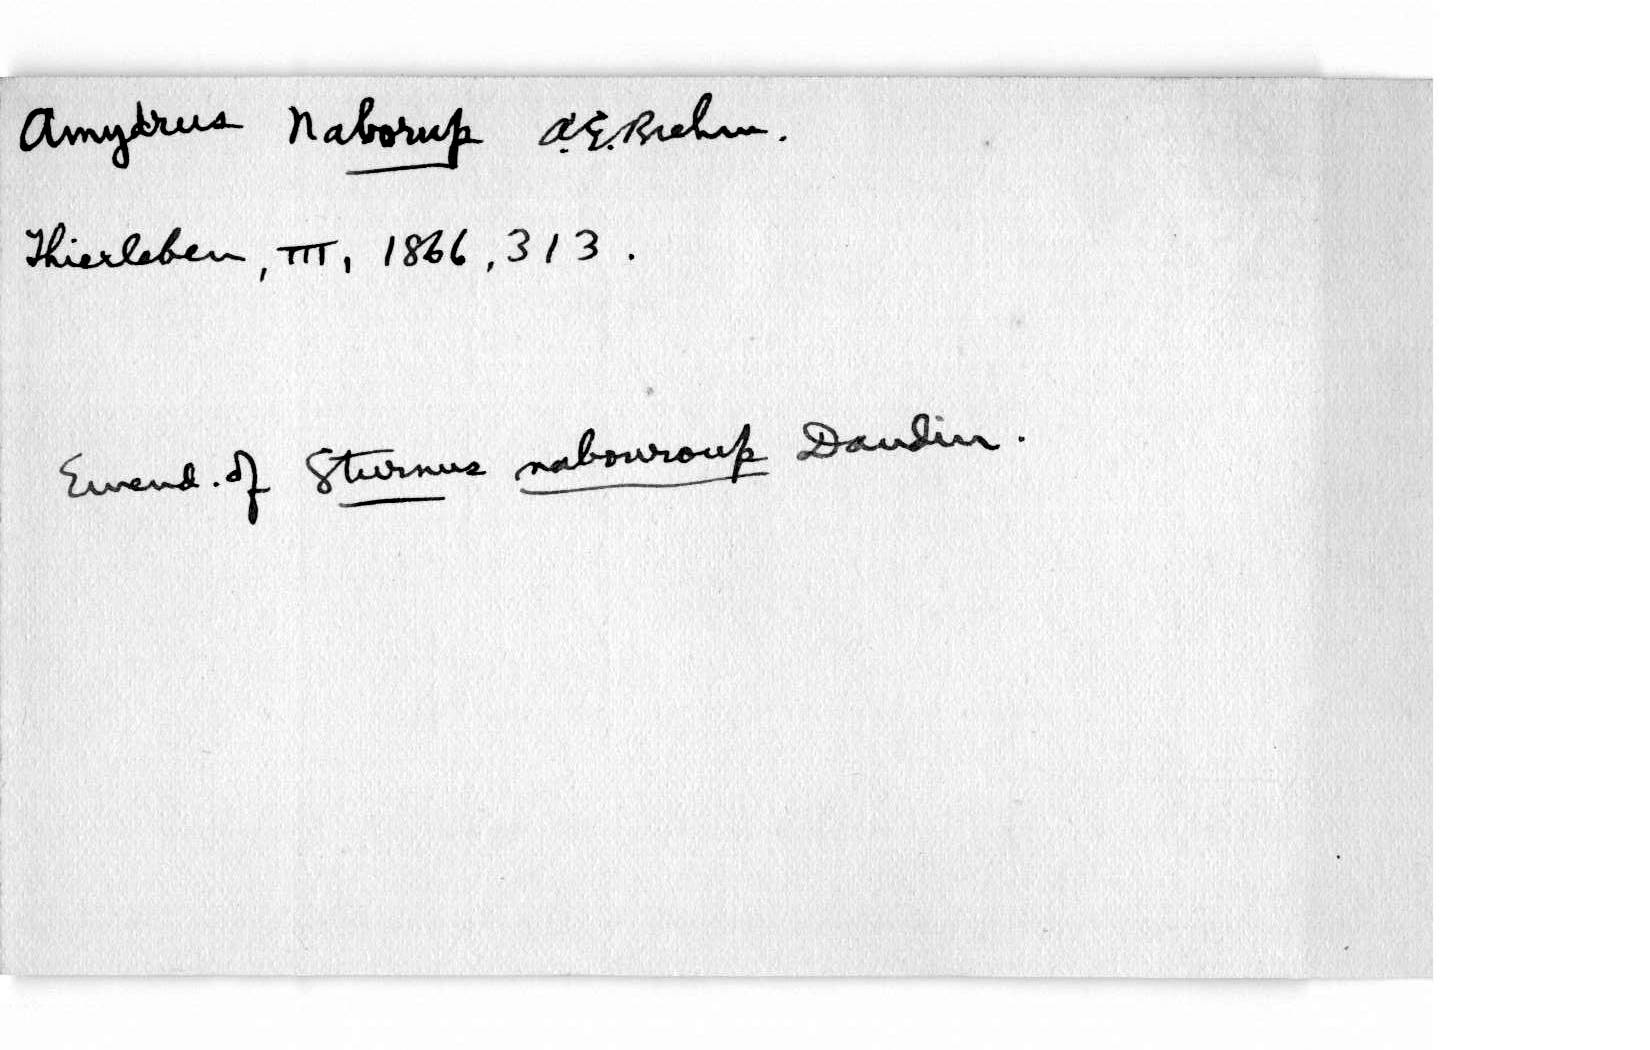 Amydrus Naborup A.E.Brehm.
Thierleben, III, 1866, 313.
Emend. of Sturnus nabouroup Daudin.